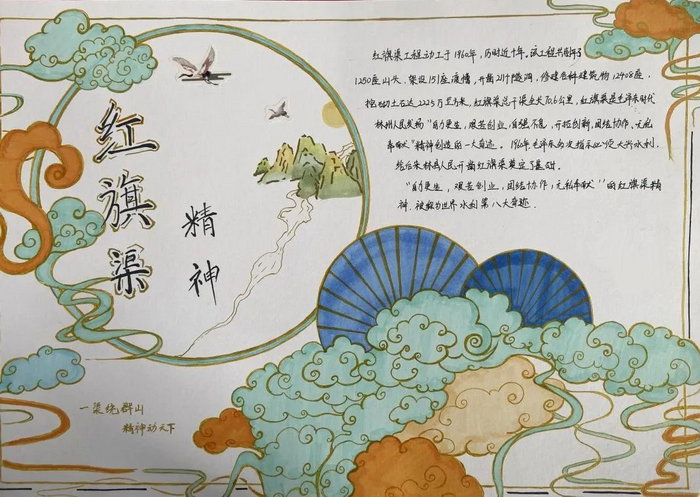 红旗渠
精神
红旗渠工程动工于1960年，历时近十年。该工程共削平了
1250座山头，架设151座渡槽，开凿211个隧洞，修建各种建筑物12408座，
挖砌土石达2225万立方米，红旗渠总干渠全长70.6公里，红旗渠是毛泽东时代
林州人民发扬“自力更生，艰苦创业，自强不息，开拓创新，团结协作，无私
奉献”精神创造的一大奇迹。
毛泽东
指示
大兴水利，
给后来林县人民开凿红旗渠奠定了基础。
“自力更生，艰苦创业，团结协作，无私奉献”的红旗渠精
神，被称为世界水利第八大奇迹
一渠绕群山
精神动天下